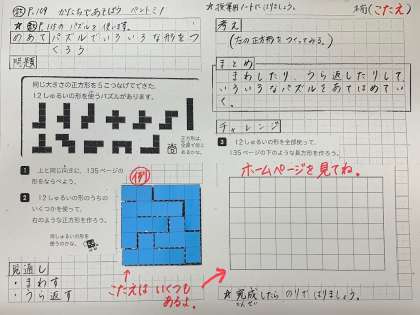 P.109 かたちであそぼう ペントミノ
★P.135のパズルを使います。
めあて パズルでいろいろな形をつ
くろう
問題
同じ大きさの正方形を5こつなげてできた、
12しゅるいの形を使うパズルがあります。
正方形は、
1 上と同じ向きに、135ページの
形をならべよう。
2 12しゅるいの形のうちの
いくつかを使って、
右のような正方形を作ろう。
同じしゅるいの形を
使うのかな。
(例)
こたえは いくつも
あるよ。
見通し
・まわす
・うら返す
★授業用ノートにはりましょう。
(こたえ)
考え
(左の正方形をつくってみる。)
まとめ
まわしたり、うら返したりして、
いろいろなパズルをあてはめてい
く。
チャレンジ
3 12しゅるいの形を全部使って、
135ページの下のような長方形を作ろう。
ホームページを見てね。
★完成したらのりではりましょう。
かんせい